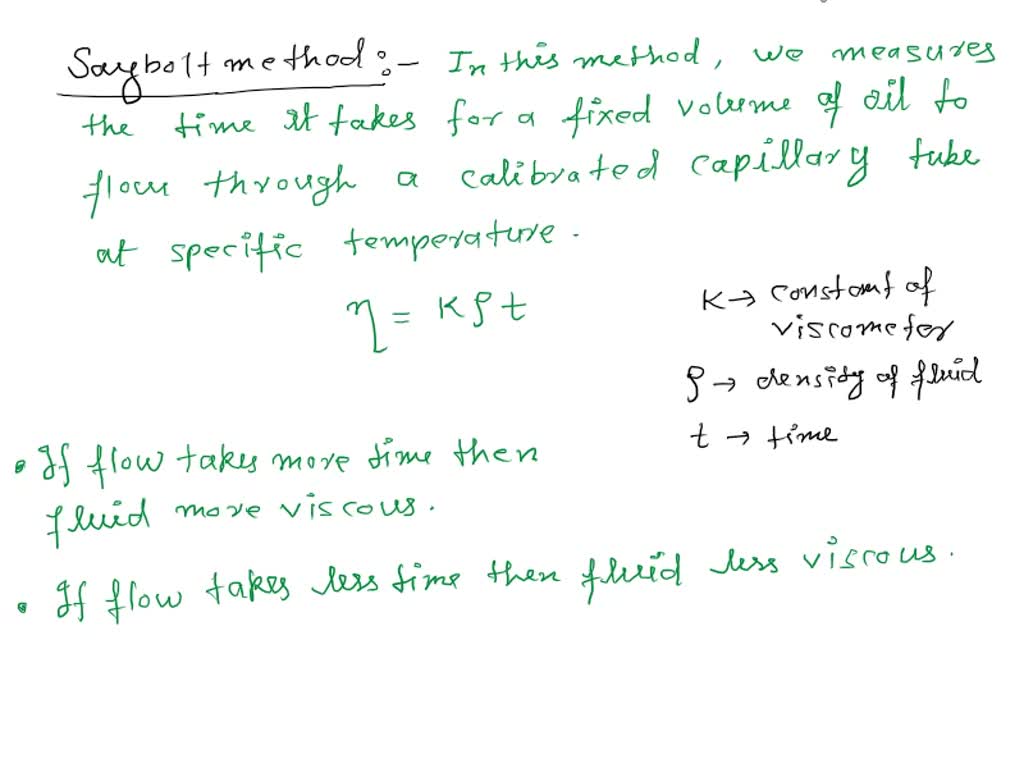 Saybolt method :- In this method, we measures
the time it takes for a fixed volume of oil to
flow through a calibrated capillary tube
at specific temperature.
η = Kρt
K → constant of
viscometer
ρ → density of fluid
t → time
• If flow takes more time then
fluid more viscous.
• If flow takes less time then fluid less viscous.